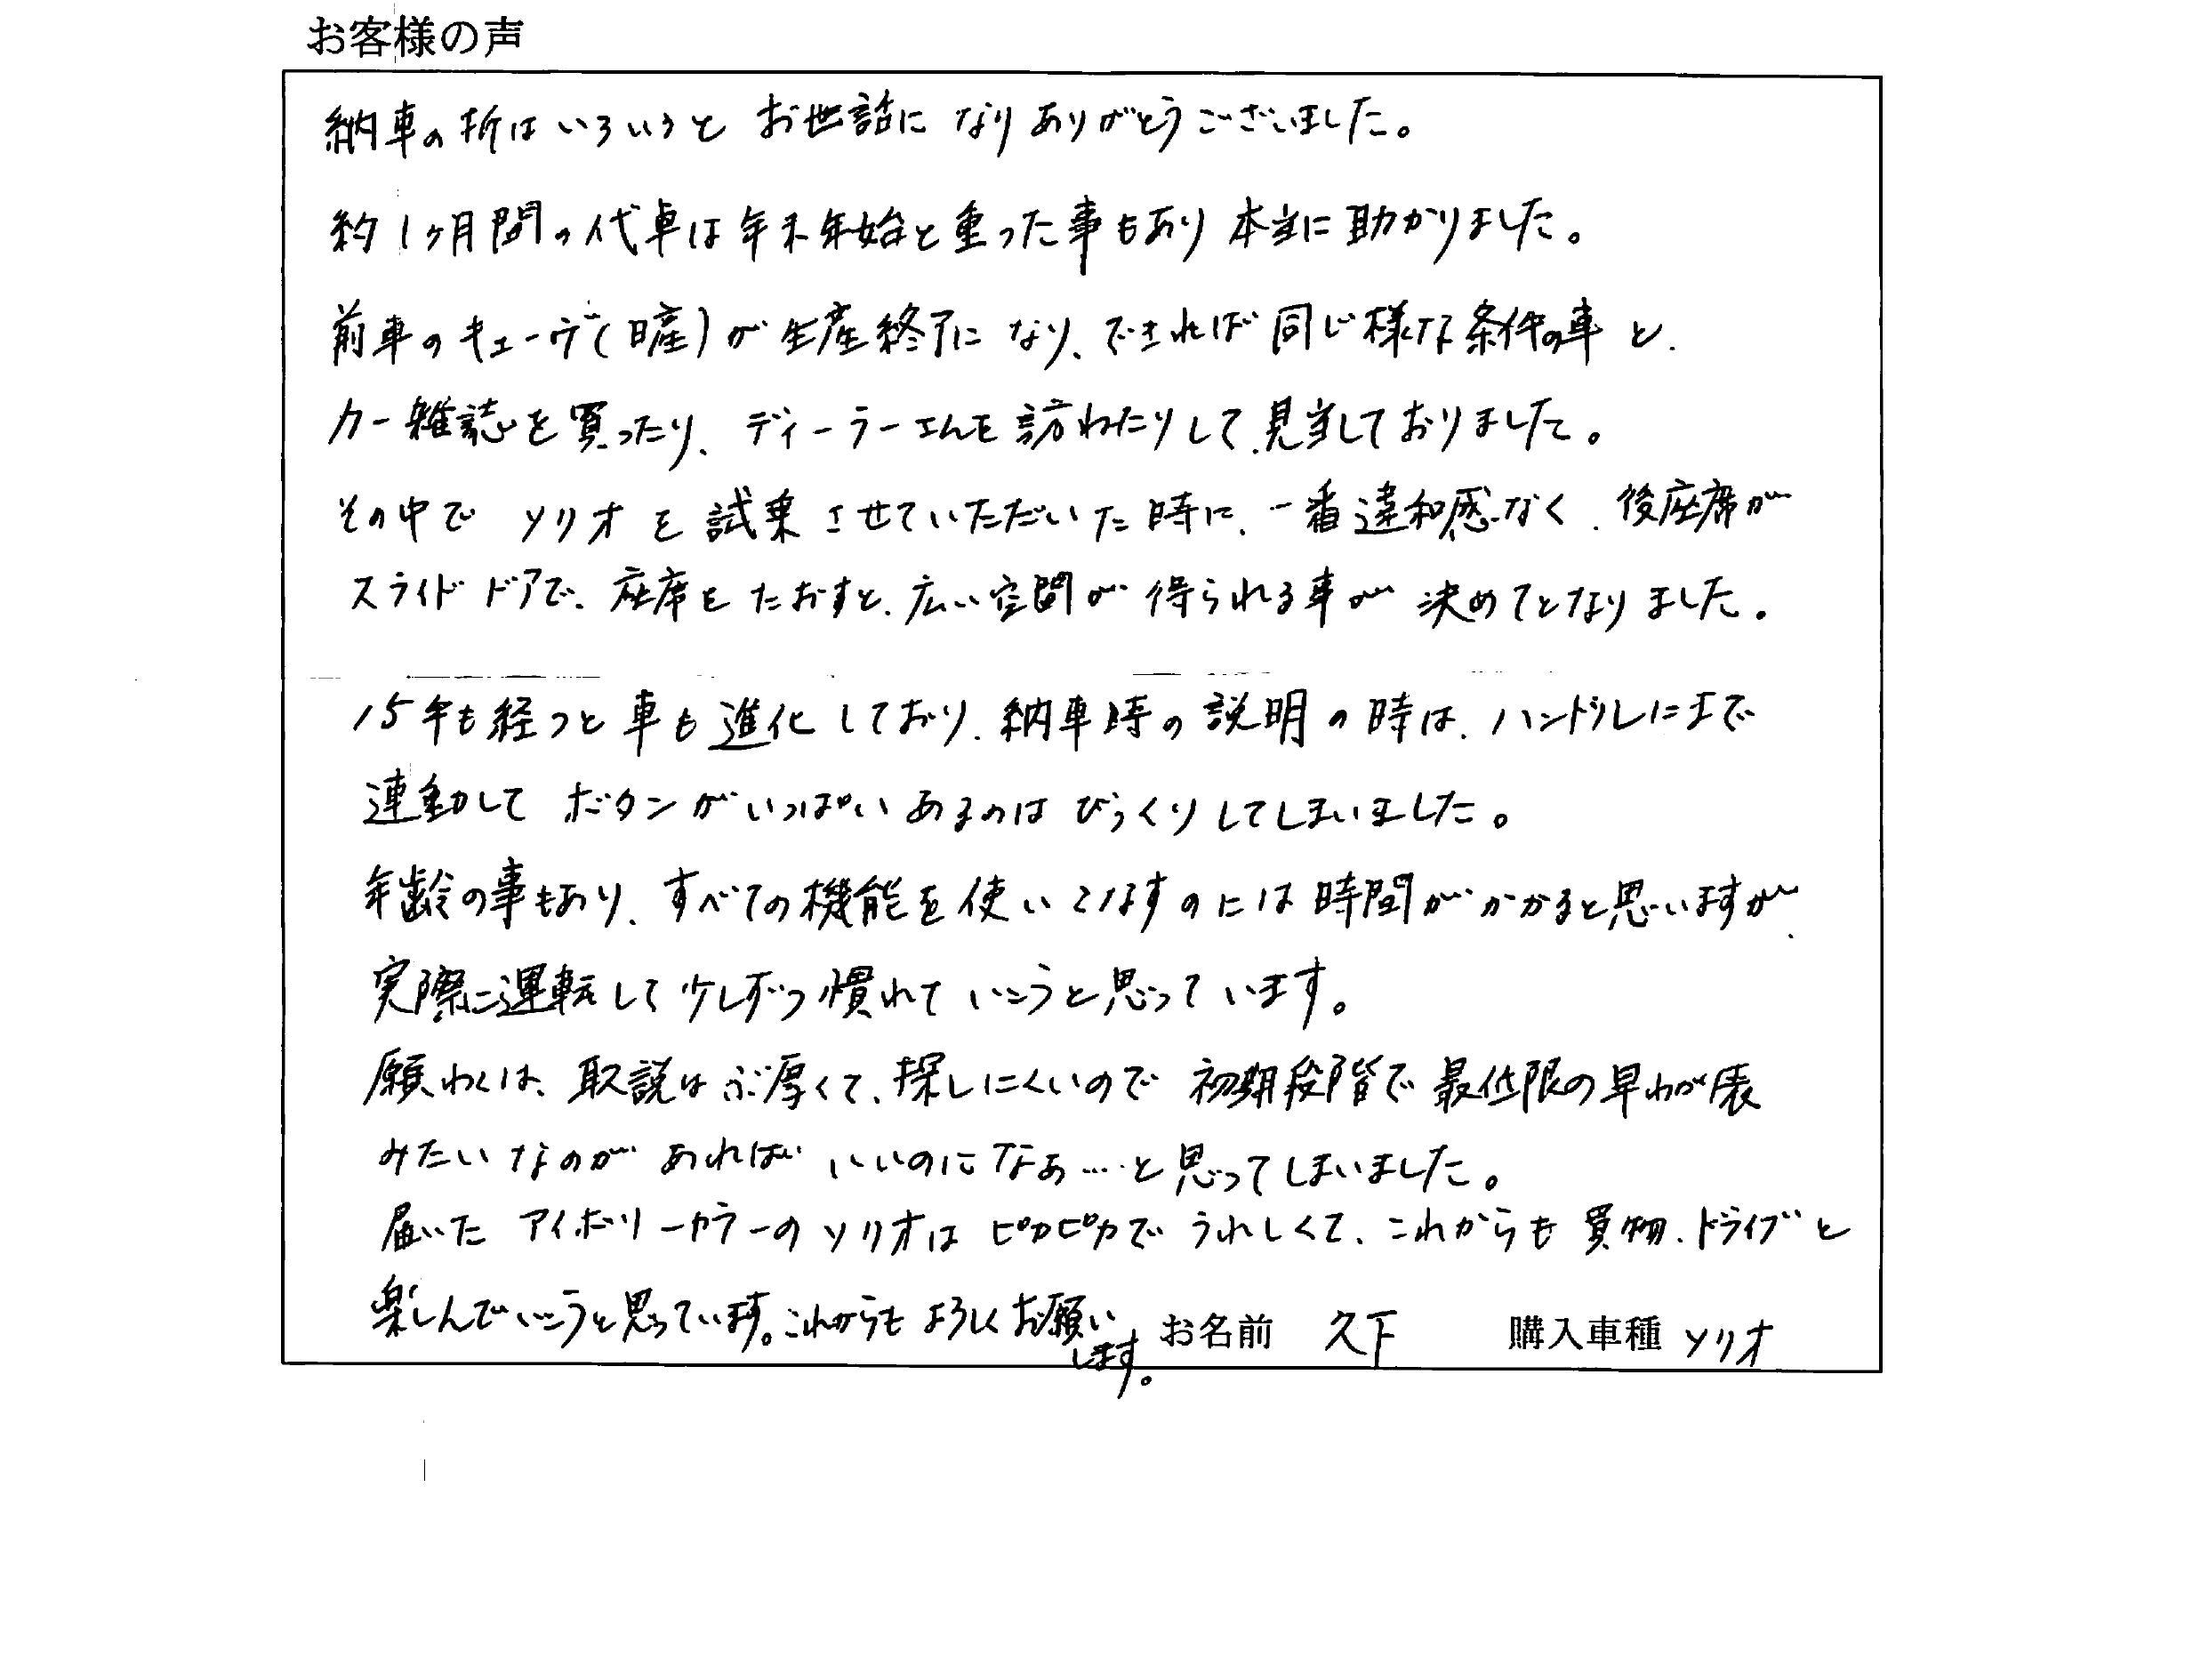 お客様の声
納車の折はいろいろと お世話に なり ありがとうございました。
約1ヶ月間の代車は年末年始と重った事もあり 本当に助かりました。
前車のキューヴ(日産)が生産終了になり、できれば同じ様な条件の車と、
カー雑誌を買ったり、ディーラーさんを訪ねたりして、見当しておりました。
その中で ソリオを試乗させていただいた時に、一番違和感なく、後座席が
スライドドアで、座席をたおすと、広い空間が得られる事が 決めてとなりました。
15年も経つと車も進化しており、納車時の説明の時は、ハンドルにまで
連動して ボタンがいっぱいあるのは びっくりしてしまいました。
年齢の事もあり、すべての機能を使いこなすのには時間がかかると思いますが、
実際に運転して少しずつ慣れていこうと思っています。
願わくは、取説はぶ厚くて、探しにくいので 初期段階で最低限の早わが表
みたいなのが あれば いいのになぁ…と思ってしまいました。
届いた アイボリーカラーのソリオは ピカピカで うれしくて、これからも 買物、ドライブと
楽しんでいこうと思っています。これからも よろしくお願い
します。
お名前 久下 購入車種 ソリオ